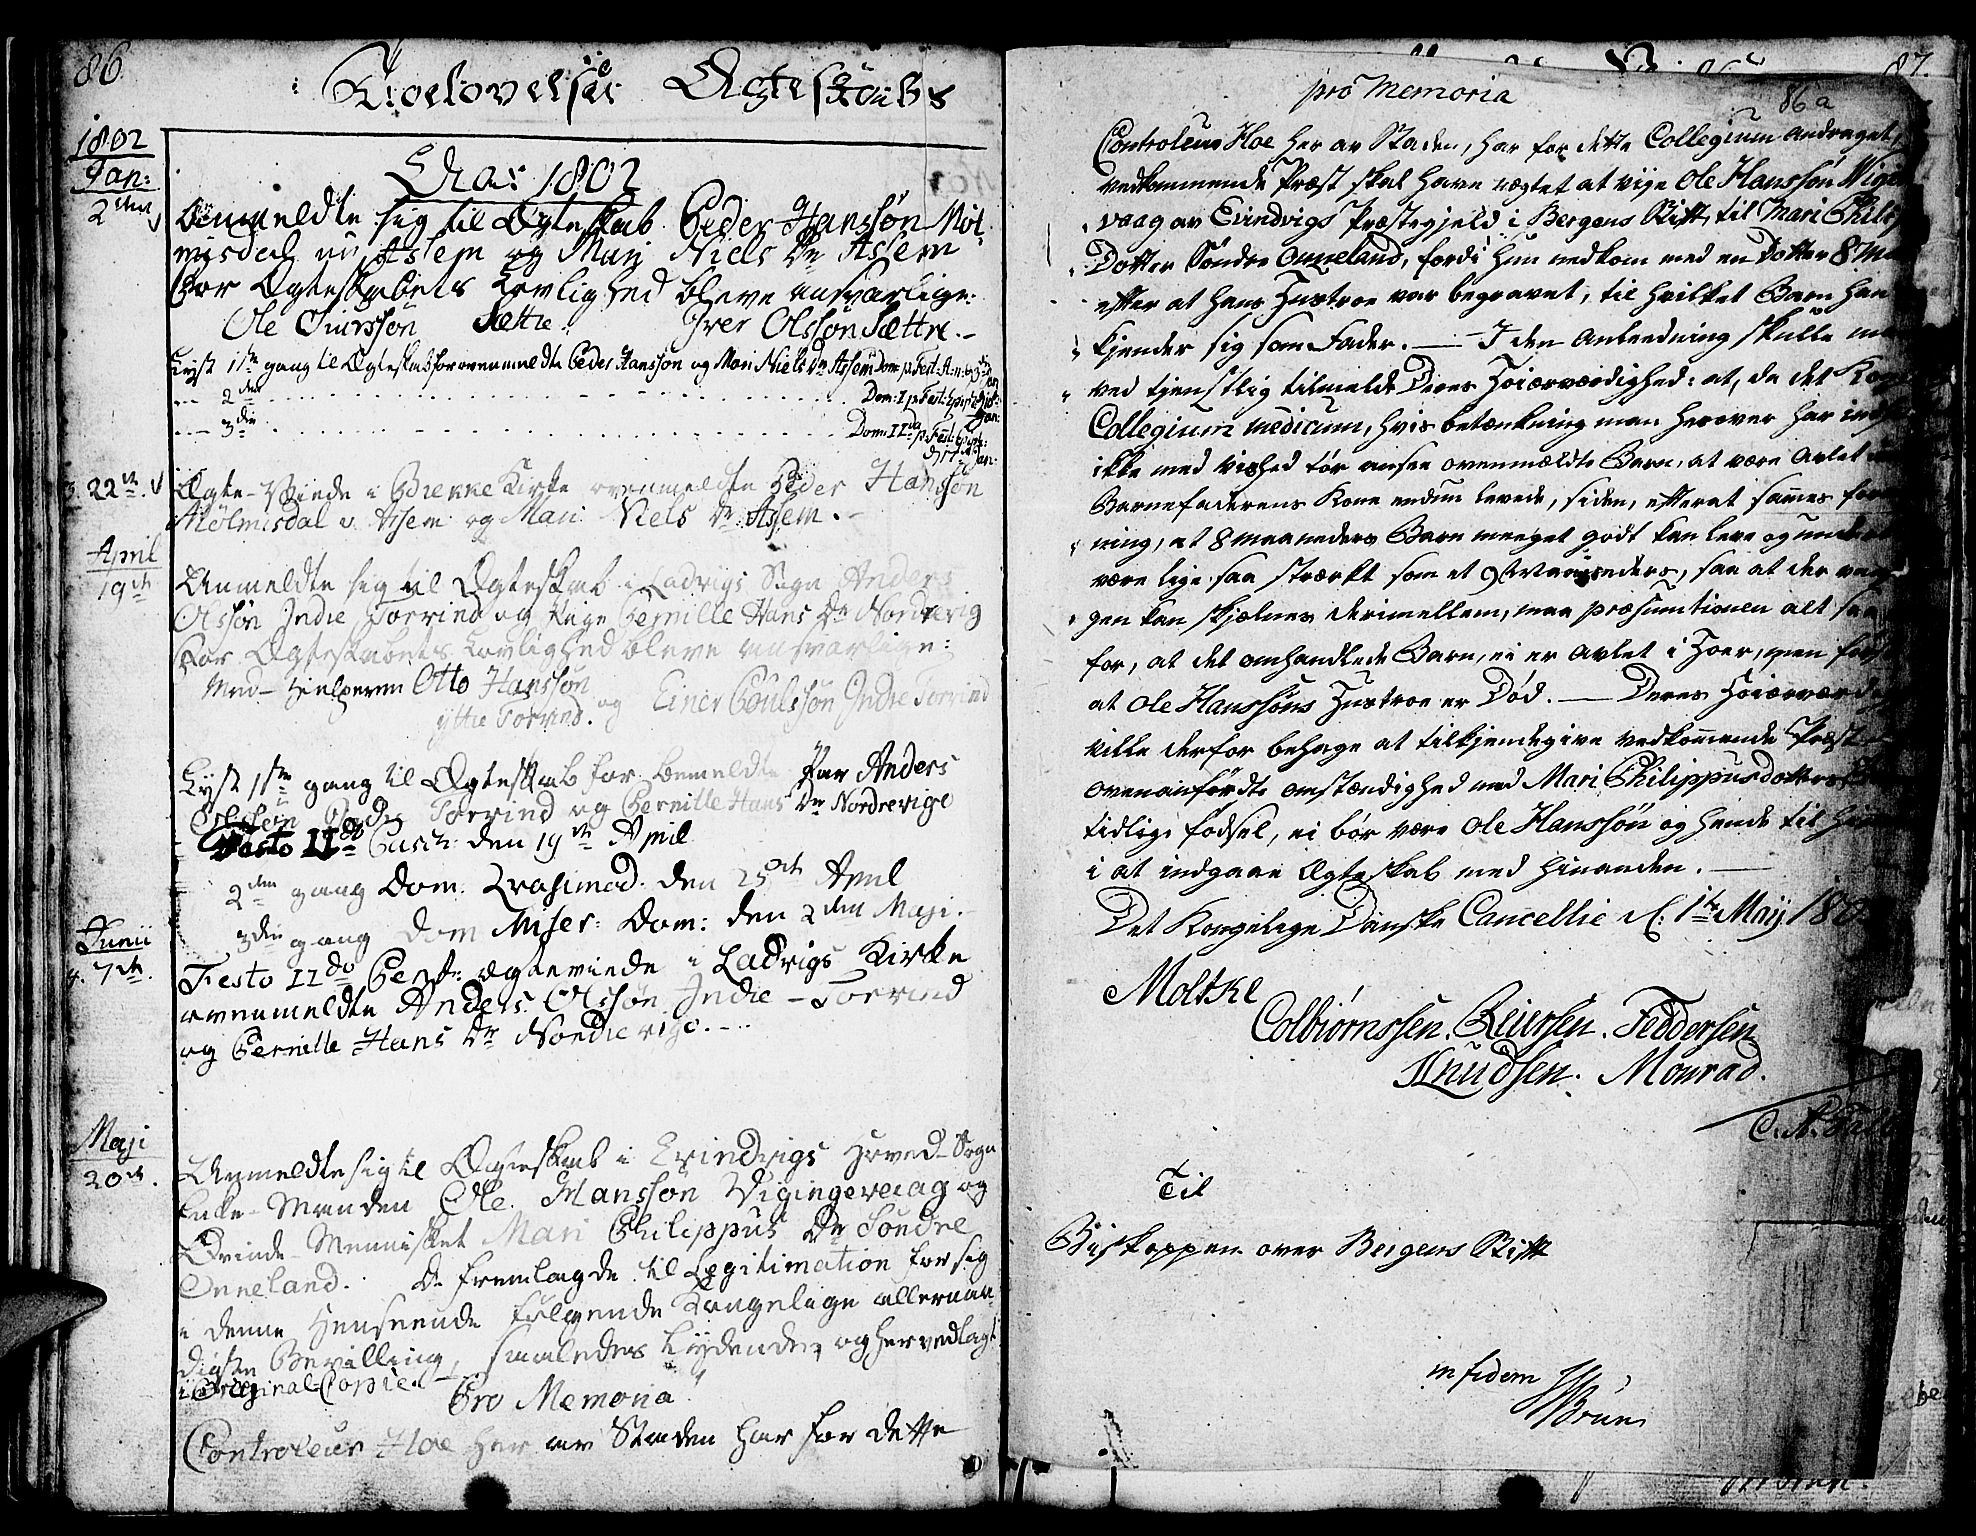 86
Troelovelser Ægteskabs
1802
Jan:
2den
Aar 1802
Anmeldte sig til Ægteskab Peder Hanssøn Møl-
misdal nu Assem og Mari Niels Dr Assem
For Ægteskabets Lovlighed bleve ansvarlige:
Ole Siurssøn Sættre. Iver Olssøn Sættre.-
Lyst 1ste gang til Ægteskab for ovenmeldte Peder Hanssøn og Mari Niels Dr Assem Dom: p. Fest:
2den Dom: I p. Fest: Epiph:
3die Dom: II p: Fest: Epiph:
d: 17 Jan:
22de. Ægte-Viede i Brekke Kirke ovenmeldte Peder Hanssøn
Mølmisdal v. Assem og Mari Niels Dr Assem.-
April
19de
Anmeldte sig til Ægteskab i Ladvigs Sogn Anders
Olssøn Indre Torvind og Pige Pernille Hans Dr Nordrevig
For Ægteskabets Lovlighed bleve ansvarlige:
Med-Hielperen Otto Hanssøn
yttre Torvind. og Einer Poulssøn Indre Torvind
Lyst 1ste gang til Ægteskab for bemeldte Par Anders
Olssøn Indre Torvind og Pernille Hans Dr Nordrevige
Festo IIdo Pasch: den 19de April
2den gang Dom: Qvasimod: den 25de April
3die gang Dom Miser: Dom: den 2den Maji.-
Junii
7de.
Festo IIdo Pent: ægteviede i Ladvigs Kirke
ovenmeldte Anders Olssøn Indre-Torvind
og Pernille Hans Dr Nordrevige.-
Maji
20de.
Anmeldte sig til Ægteskab i Evindvigs Hoved-Sogn
Enke-Manden Ole Hanssøn Vigingevaag og
Qvinde-Mennisket Mari Philippus Dr Søndre
Onneland. De fremlagde til Legitimation for sig
i denne Henseende følgende Kongelige allernaa-
digste Bevilling, saaledes Lydende, og hervedlagt
i Original Copie.
Pro Memoria
Controleur Hoe her av Staden har for dette
87.
pro Memoria
86a
Controleur Hoe her av Staden, har for dette Collegium andraget,
vedkommende Præst skal have vægret at vije Ole Hanssøn Wige
vaag av Evindvigs Præstegjeld i Bergens Stift, til Mari Phili
Dotter Søndre Onneland, fordi hun nedkom med en Dotter 8 Ma
efter at hans Hustroe var begravet, til hvilket Barn han
kjender sig som Fader.— I den Anledning skulle m
ved tjenstlig tilmelde Deres Høiærværdighed: at, da det Kon
Collegium medicum, hvis betænkning man herover har ind
ikke med vished tør ansee ovenmældte Barn, at være Avlet
Barnefaderens Kone endnu levede, siden, efterat sammes for
ning, at 8 maaneders Barn meeget godt kan leve og
være lige saa stærkt som et 9 Maaneders, saa at der
gen kan skjælnes derimellem, maa præsumtionen alt saa
for, at det omhandlede Barn, ei er Avlet i Hoer, men
at Ole Hanssøns Hustroe er Død.— Deres Høiærværd
ville derfor behage at tilkjendegive vedkommende Præst
ovenanførdte omstændighed med Mari Philippusdotters
tidlige fødsel, ei bør være Ole Hanssøn og hende til hin
i at indgaae Ægteskab med hinanden.—
Det Kongelige Danske Cancellie d: 1te Maij 180
Moltke
Colbiørnssen. Reiersen. Feddersen
Knudsen. Monrad.
Til
Biskoppen over Bergens Stift
in fidem
Brun